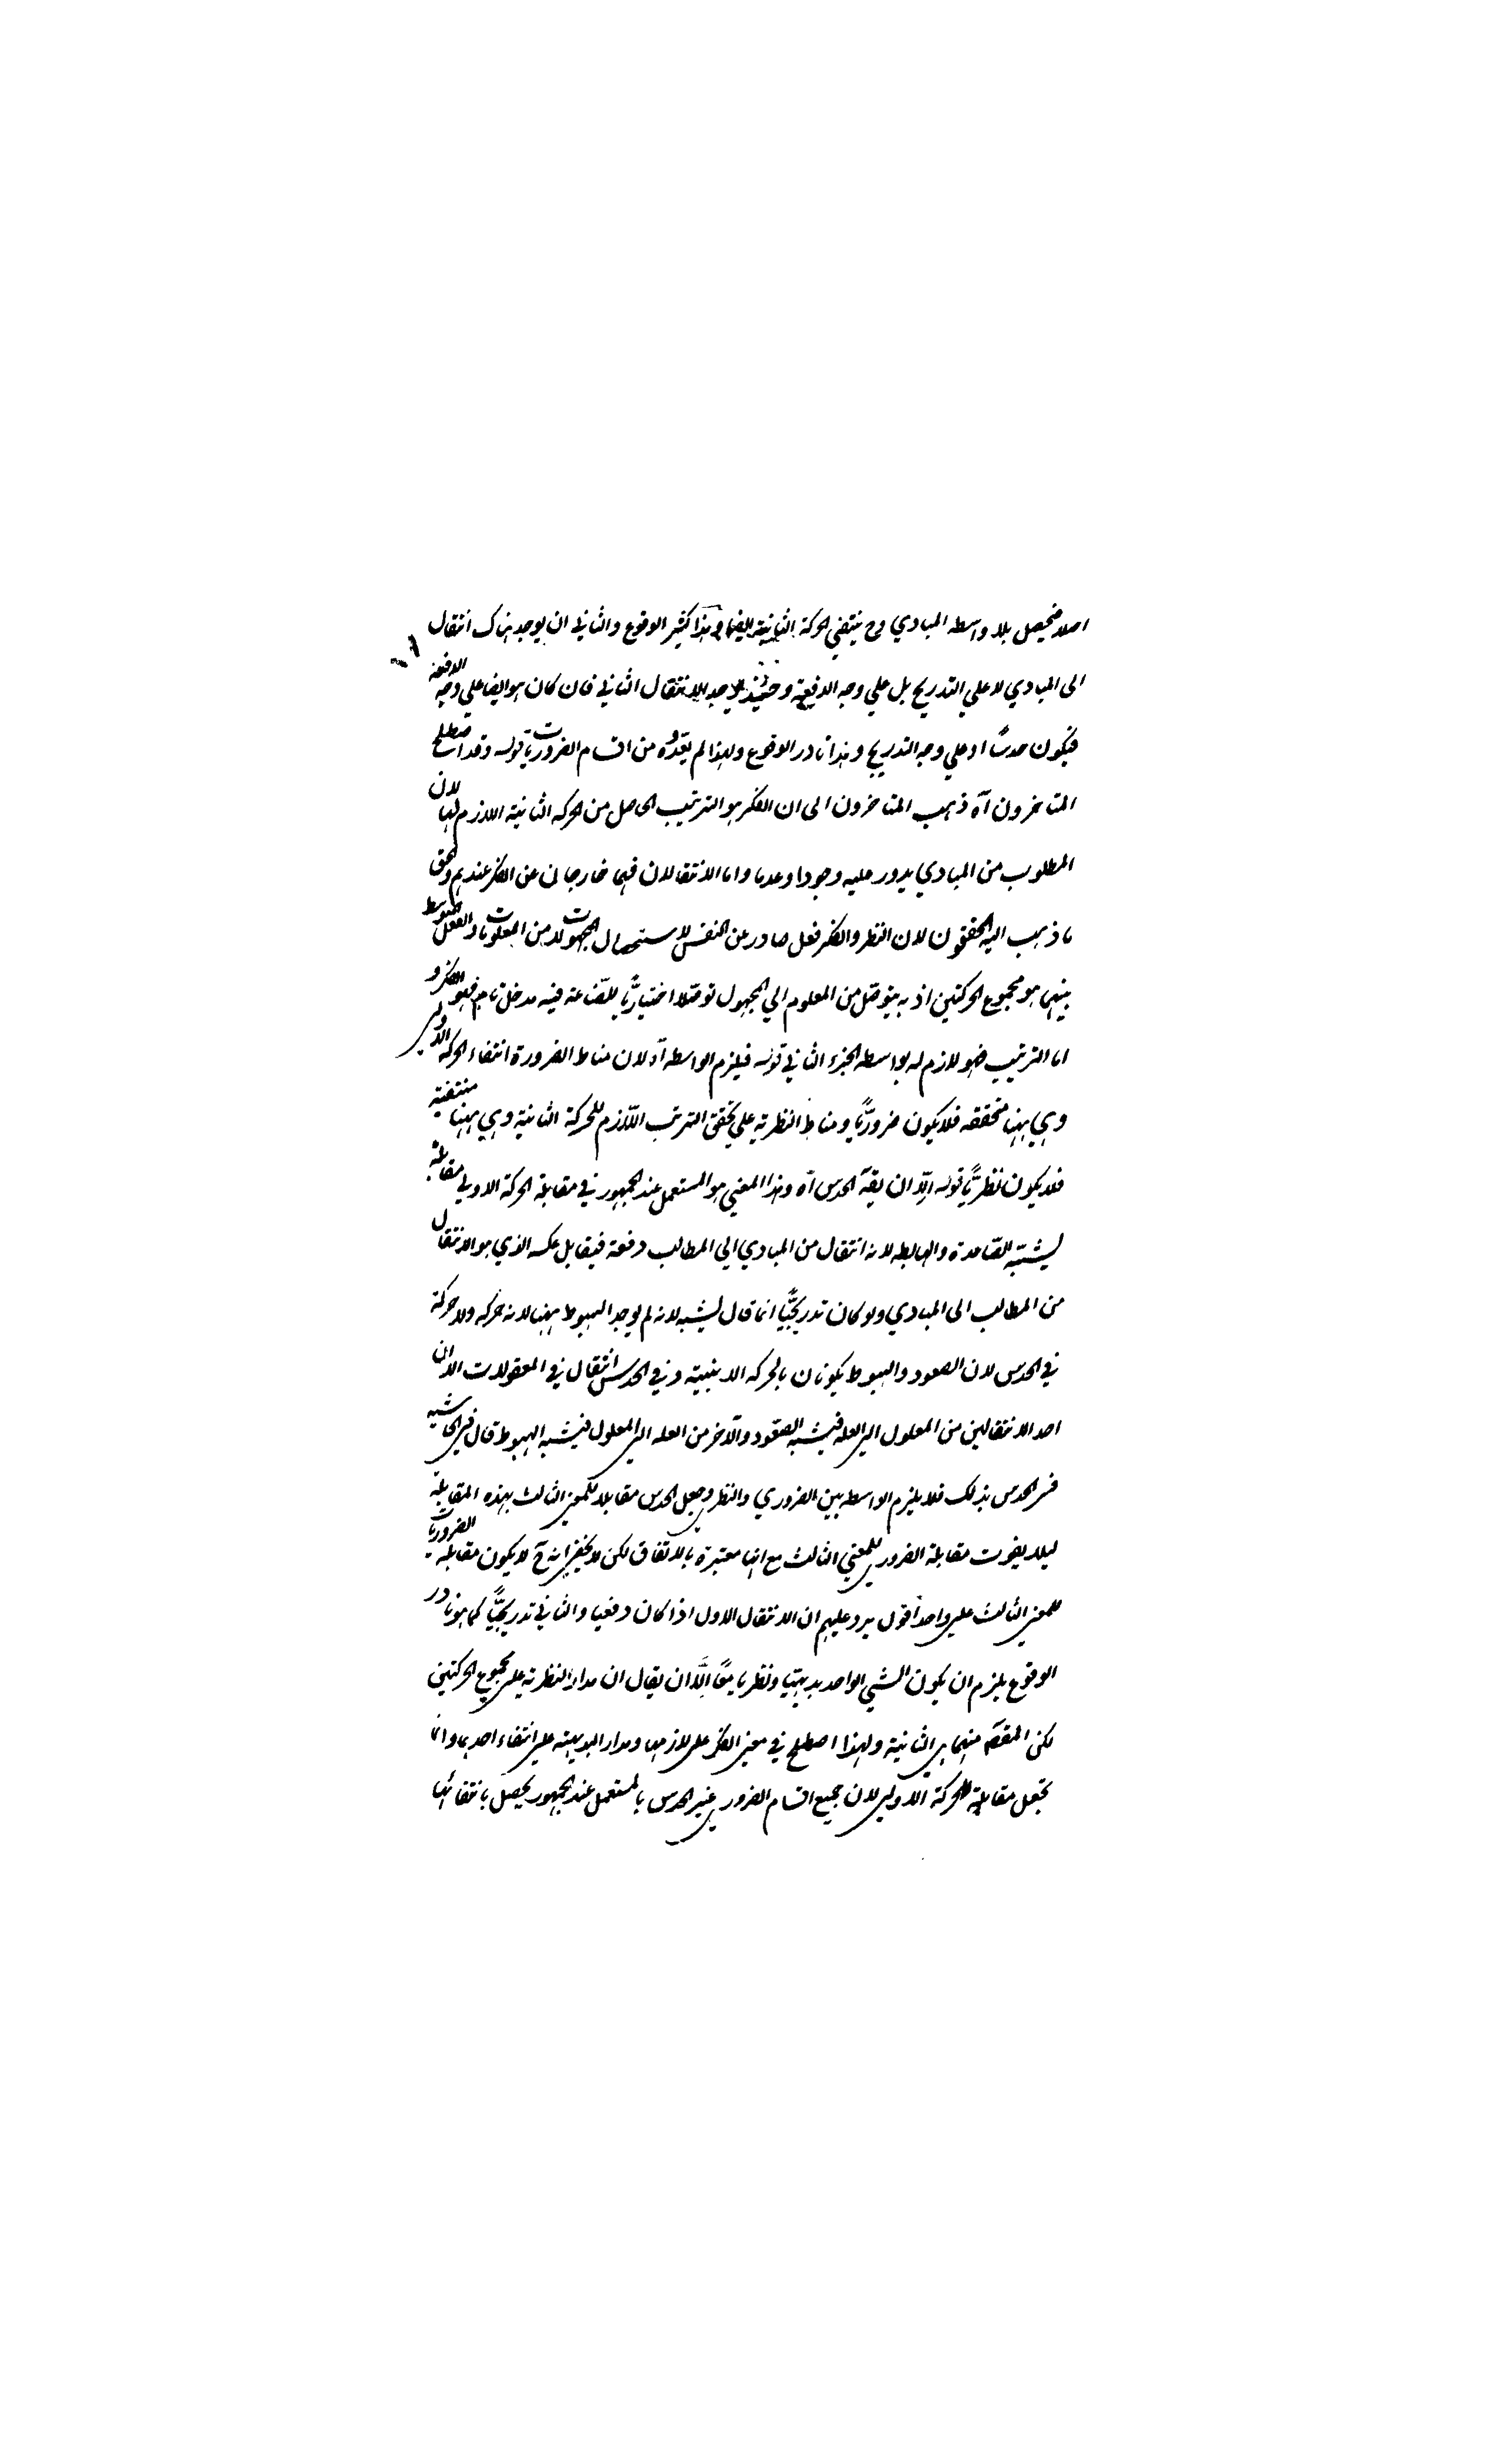 اصلا فيحصل بلا واسطه المبادي وح ينتفي الحركة الثانية ايضا وهذا كثير الوقوع والثاني ان يوجد هناك انتقال
الى المبادي لا علي التدريج بل علي وجه الدفعة وحينئذ لا يوجد الانتقال الثاني فان كان هو ايضا علي وجه الدفعة
فيكون حدسًا او علي وجه التدريج وهذا نادر الوقوع ولهذا لم يعدّوه من اقسام الضروريات قوله وقد اصطلح
المتاخرون آه ذهب المتاخرون الى ان الفكر هو الترتيب الحاصل من الحركه الثانية اللازم لها لان
المطلوب من المبادي يدور عليه وجودا وعدما واما الانتقالان فهما خارجان عن الفكر عندهم والحق
ما ذهب اليه المحققون لان النظر والفكر فعل صادر عن النفس لاستحصال المجهولات من المعلومات والفعل المتوسط
بينهما هو مجموع الحركتين اذ به يتوصّل من المعلوم الي المجهول توصّلا اختياريًّا للصّناعة فيه مدخل تام فهو الفكر و
اما الترتيب فهو لازم له بواسطه الجزء الثاني قوله فيلزم الواسطه آه لان مناط الضرورة انتفاء الحركه الاولى
وهي ههنا متحققه فلا يكون ضروريًّا ومناط النظرية علي تحقق الترتيب اللّازم للحركة الثانية وهي ههنا منتفية
فلا يكون نظريًّا قوله الّا ان يقه الحدس آه وهذا المعني هو المستعمل عند الجمهور في مقابلة الحركة الاولي مقابلة
يشبّه الصّاعدة والهابطه لانه انتقال من المبادي الي المطالب دفعة فيقابل عكسه الذي هو الانتقال
من المطالب الى المبادي ولو كان تدريجيًّا انما قال يشبه لانه لم يوجد الهبوط ههنا لانه حركه ولا حركة
في الحدس لان الصعود والهبوط يكونان بالحركه الاينيية وفي الحدس انتقال في المعقولات الا ان
احد الانتقالين من المعلول الى العله فيشبه الصّعود والآخر من العله الى المعلول فيشبه الهبوط قال في الحاشيه
فسر الحدس بذلك فلا يلزم الواسطه بين الضروري والنظري وجعل الحدس مقابلا للمعنى الثالث بهذه المقابلة
ليلا يفوت مقابلة الضروري للمعني الثالث مع انها معتبرة بالاتفاق لكن لا يخفى انه ح لا يكون مقابلة الضروريات
للمعنى الثالث على واحد اقول يرد عليهم ان الانتقال الاول اذا كان دفعيا والثاني تدريجيًّا كما هو نادر
الوقوع يلزم ان يكون الشيي الواحد بديهيّا ونظريا معًا الّا ان يقال ان مدار النظرية على مجموع الحركتين
لكن المقصم منهما هي الثانية ولهذا اصطلح في معنى الفكر على لازمها ومدار البديهيه على انتفاء احدهما وانما
تجعل مقابلة للحركة الاولى لان جميع اقسام الضروري غير الحدس بالمستعمل عند الجمهور يحصل بانتفائها